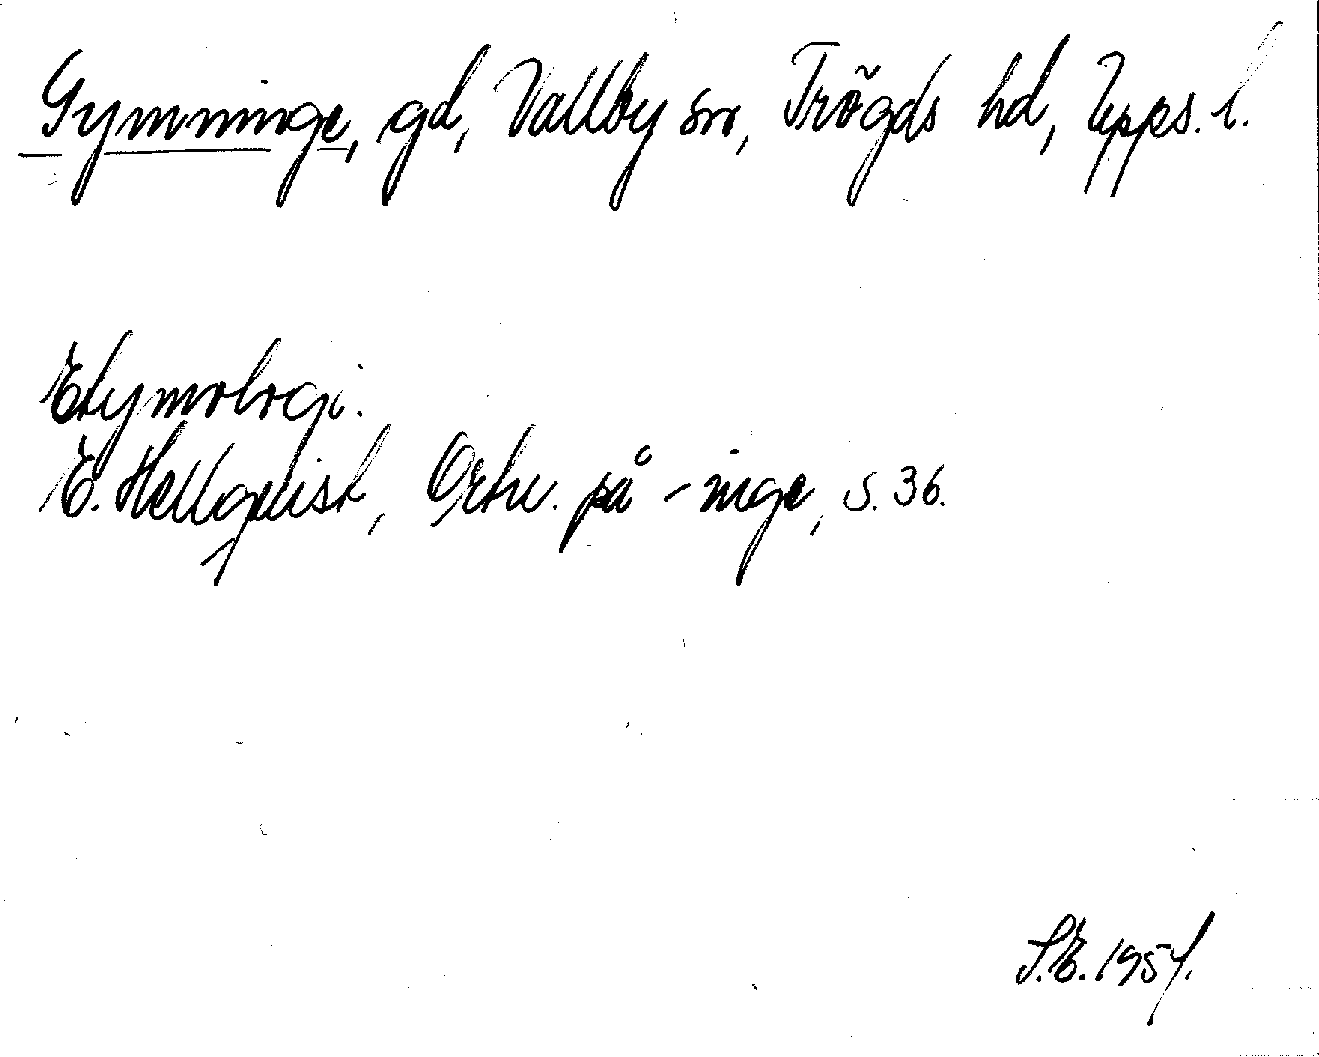 Gymminge, gd, Vallby sn, Trögds hd, Upps. l.
Etymologi.
E. Hellquist, Ortn. på -inge, s. 36.
S.E. 1951.